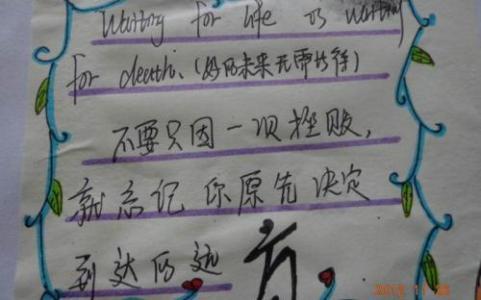 Waiting for life is waiting
for death.(好的未来无需等待)
不要只因一次挫败,
就忘记你原先决定
到达的远方.